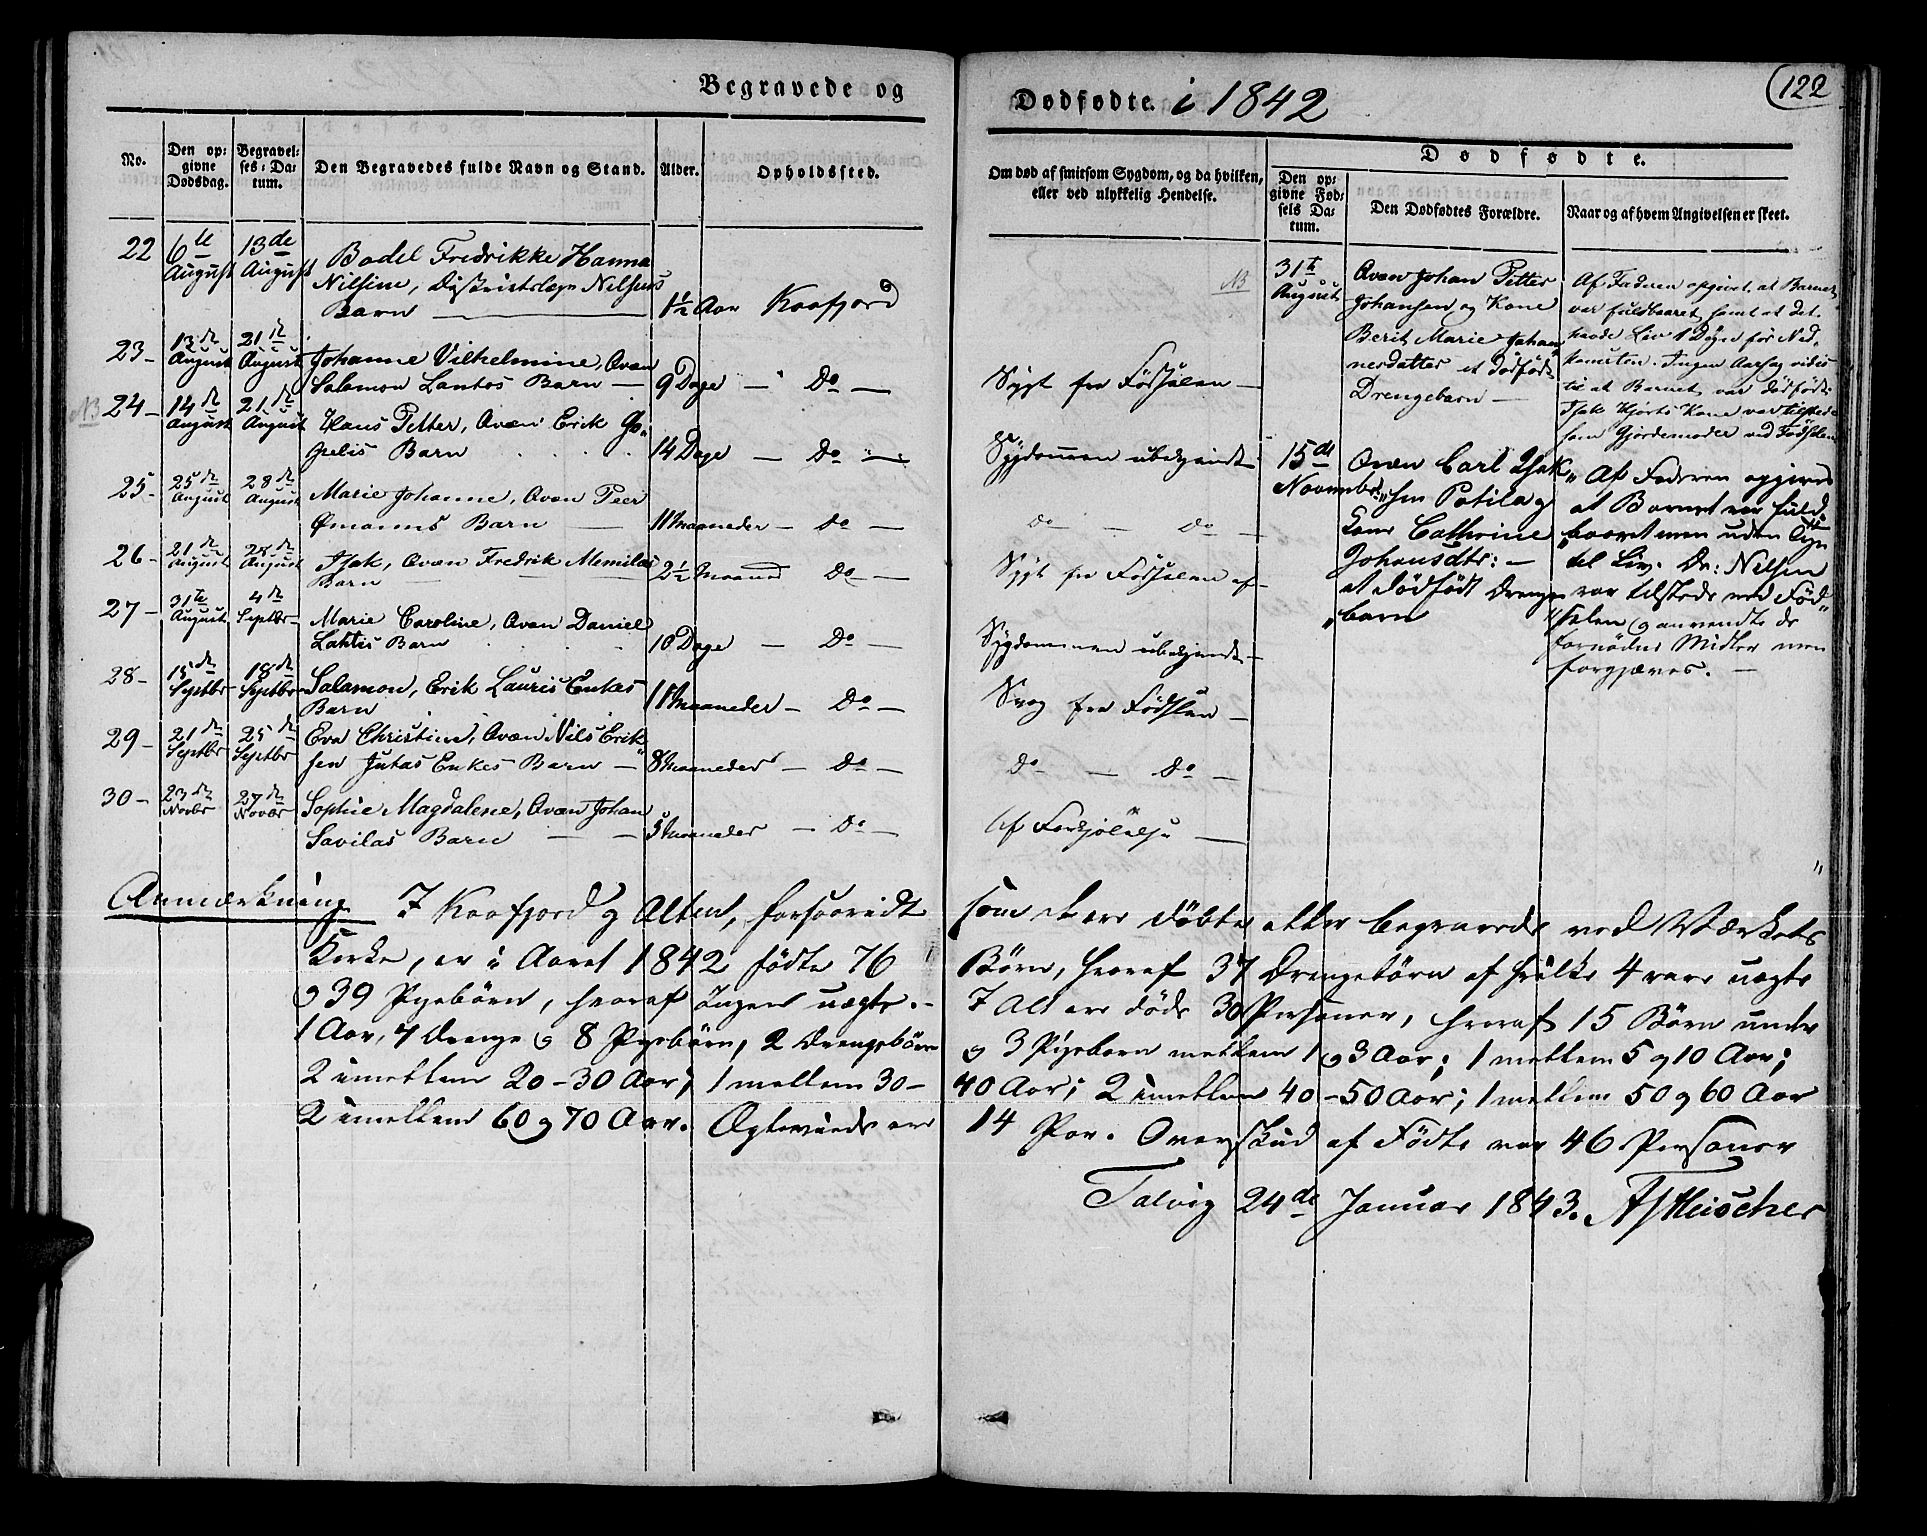 Begravede og
No.
Den op-
givne
Dødsdag.
Begravel-
ses-Da-
tum.
Den Begravedes fulde Navn og Stand.
Alder.
Opholdssted.
22 6te August 13de August Bodel Fredrikke Hanna
Nilsine, Districtslæge Nilsens
Barn 1½ Aar Kaafjord
23 - 13de August 21de August Johanne Vilhelmine, Qvæn
Salamon Lantos Barn — 9 Dage — Do —
NB 24 - 14de August 21de August Hans Petter, Qvæn Erik
Barn 14 Dage — Do —
25 - 25de August 28de August Marie Johanne, Qvæn Peer
Ømanns Barn — 11 Maaneder — Do —
26 - 21de August 28de August Isak, Qvæn Fredrik
Barn — 2½ Maaned Do —
27 - 31te August 4de Septbr Marie Caroline, Qvæn Daniel
Lahtis Barn 10 Dage — Do —
28 - 15de Septbr 18de Septbr Salamon, Erik Lauris Enkes
Barn 11 Maaneder — Do —
29 - 21de Septbr 25de Septbr Eva Christine, Qvæn Nils Erik-
sen Jutas Enkes Barn — 8 Maaneder — Do —
30 - 23de Novbr 27de Novbr Sophie Magdalene, Qvæn Johan
Savilas Barn — 5 Maaneder — Do —
Anmærkning I Kaafjord og Alten, forsaavidt
Kirke, er i Aaret 1842 fødte 76
og 39 Pigebørn, hvoraf Ingen uægte. -
1 Aar, 4 Drenge og 8 Pigebørn, 2 Drengebørn
2 imellem 20-30 Aar; 1 mellem 30-
2 imellem 60 og 70 Aar. Ægteviede ere
Dødfødte. i 1842
122
Om død af smitsom Sygdom, og da hvilken,
eller ved ulykkelig Hendelse.
Dødfødte.
Den op-
givne Fød-
sels Da-
tum.
Den Dødfødtes Forældre.
Naar og af hvem Angivelsen er skeet.
Sygt fra Fødselen —
Sygdommen ubekjendt
Do — Do —
Sygt fra Fødselen af
Sygdommen ubekjendt —
Svag fra Fødslen —
Do — Do —
Af Forkjølelse —
NB 31te August
Qvæn Johan Petter
Johansen og Kone
Berit Marie Johan-
nesdatter et dødfødt
Drengebarn —
Af Faderen opgivet, at Barnet
var fuldbaaret samt at det
havde Liv 1 Døgn før Ned-
komsten. Ingen Aarsag vides
til at Barnet var dødfødt.
Isak Hjorts Kone var tilstede
som Gjordemoder ved Fødselen
15de November
Qvæn Carl Isak-
sen Potila og
Kone Cathrine
Johansdtr: —
et dødfødt Drenge-
barn
Af Faderen opgives
at Barnet var fuld-
baaret men uden Tegn
til Liv. Dr: Nilsen
var tilstede ved Fød-
selen og anvendte de
fornødne Midler men
forgjæves. —
som der ere døbte eller begravede ved Værkets
Børn, hvoraf 37 Drengebørn af hvilke 4 vare uægte
I Alt ere døde 30 Personer, hvoraf 15 Børn under
og 3 Pigebørn mellem 1 og 3 Aar; 1 mellem 5 og 10 Aar;
40 Aar; 2 imellem 40-50 Aar; 1 mellem 50 og 60 Aar
14 Par. Overskud af Fødte var 46 Personer
Talvig 24de Januar 1843.